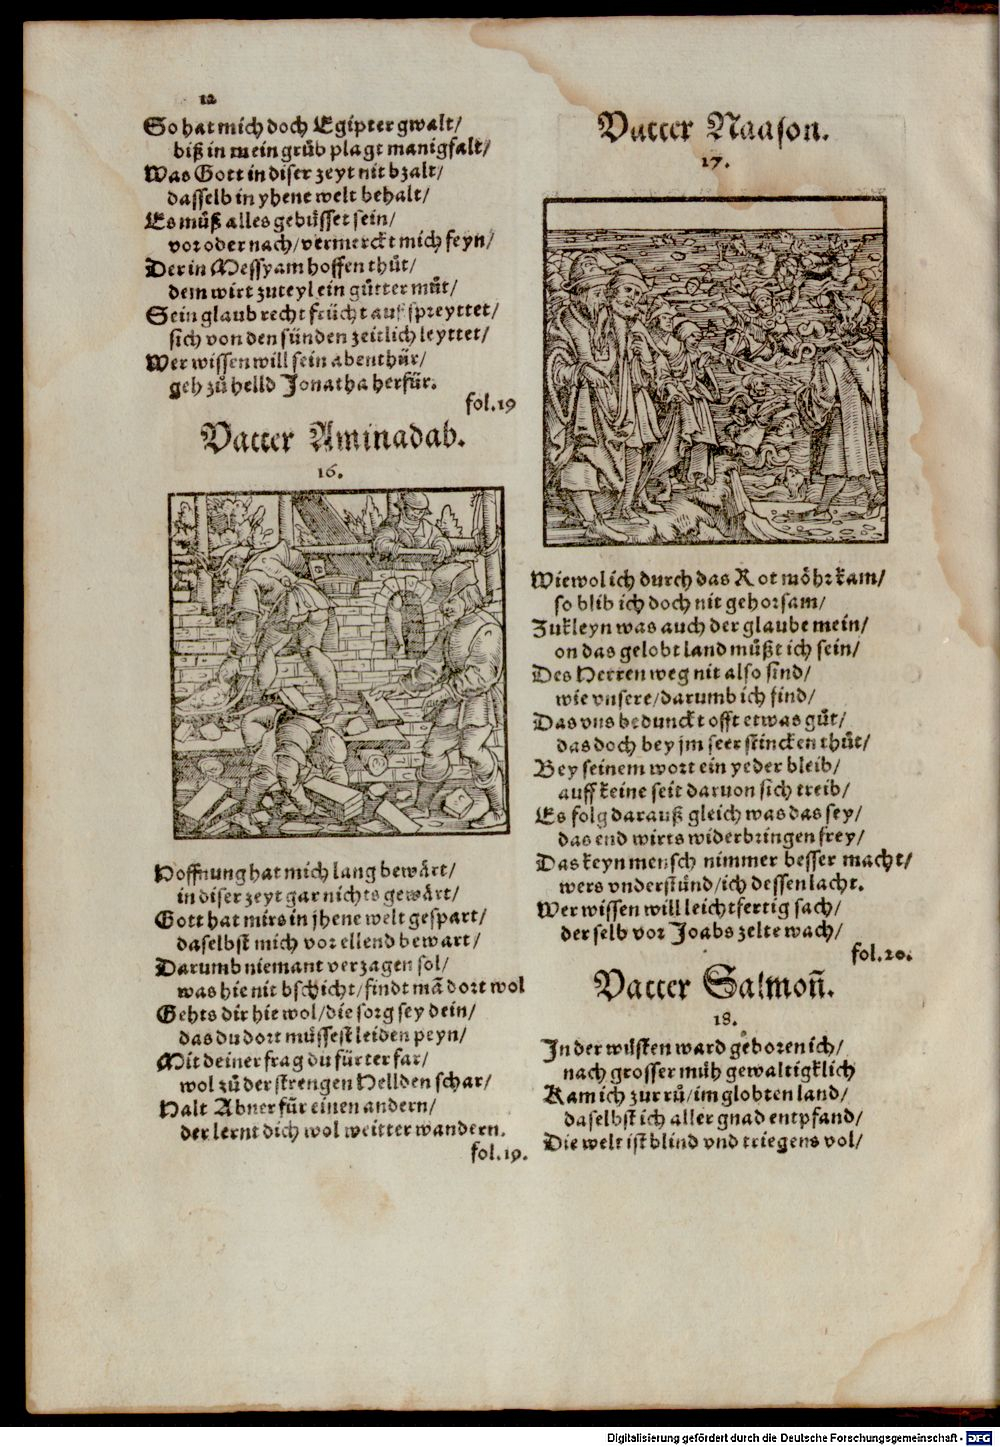 12
So hat mich doch Egipter gwalt/
biß in mein grůb plagt manigfalt/
Was Gott in diser zeyt nit bzalt/
dasselb in yhene welt behalt/
Es můß alles gebüsset sein/
vor oder nach/vermerckt mich feyn/
Der in Messyam hoffen thůt/
dem wirt zuteyl ein gůtter můt/
Sein glaub recht frücht auff spreyttet/
sich von den sünden zeitlich leyttet/
Wer wissen will sein abenthür/
geh zů helld Jonatha herfür.
fol.19
Vatter Aminadab.
16.
Hoffnung hat mich lang bewärt/
in diser zeyt gar nichts gewärt/
Gott hat mirs in jhene welt gespart/
daselbst mich vor ellend bewart/
Darumb niemant verzagen sol/
was hie nit bschicht/findt mā dort wol
Gehts dir hie wol/die sorg sey dein/
das du dort müssest leiden peyn/
Mit deiner frag du fürter far/
wol zů der strengen Hellden schar/
Halt Abner für einen andern/
der lernt dich wol weitter wandern.
fol.19.
Vatter Naason.
17.
Wiewol ich durch das Rot möhr kam/
so blib ich doch nit gehorsam/
Zukleyn was auch der glaube mein/
on das gelobt land můßt ich sein/
Des Herren weg nit also sind/
wie vnsere/darumb ich find/
Das vns bedunckt offt etwas gůt/
das doch bey jm seer stincken thůt/
Bey seinem wort ein yeder bleib/
auff keine seit daruon sich treib/
Es folg darauß gleich was das sey/
das end wirts widerbringen frey/
Das keyn mensch nimmer besser macht/
wers vnderstünd/ich dessen lacht.
Wer wissen will leichtfertig sach/
der selb vor Joabs zelte wach/
fol.20.
Vatter Salmon̄.
18.
In der wüsten ward geboren ich/
nach grosser müh gewaltigklich
Kam ich zur rů/im globten land/
daselbst ich aller gnad entpfand/
Die welt ist blind vnd triegens vol/
Digitalisierung gefördert durch die Deutsche Forschungsgemeinschaft - DFG